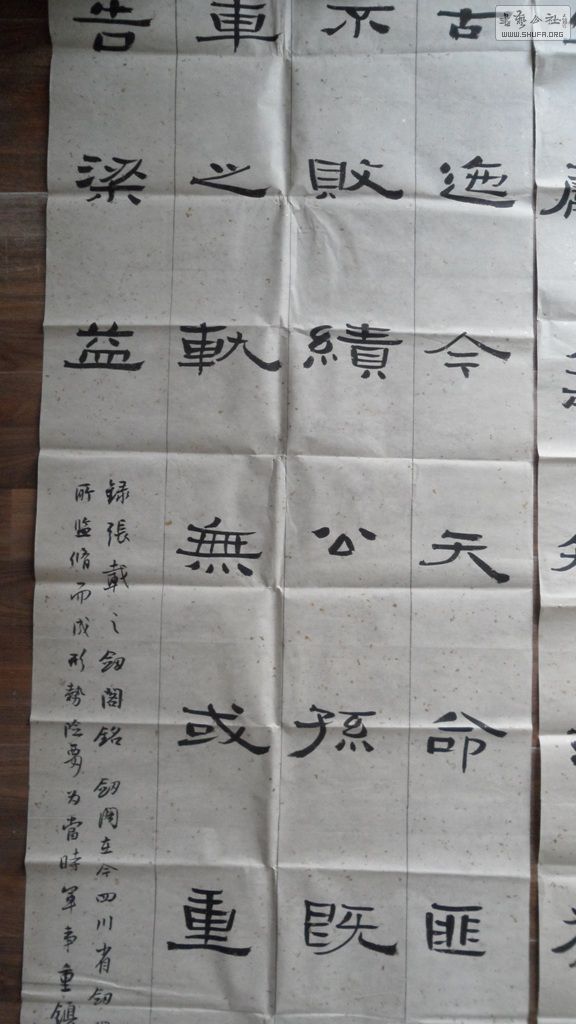 書藝公社
WWW.SHUFA.ORG
古迄今天命匪
不敗績公孫既
車之軌無或重
告梁益
錄張載之劔閣銘劔閣在今四川省劔
所監脩而成形勢險要为當時軍事重鎮